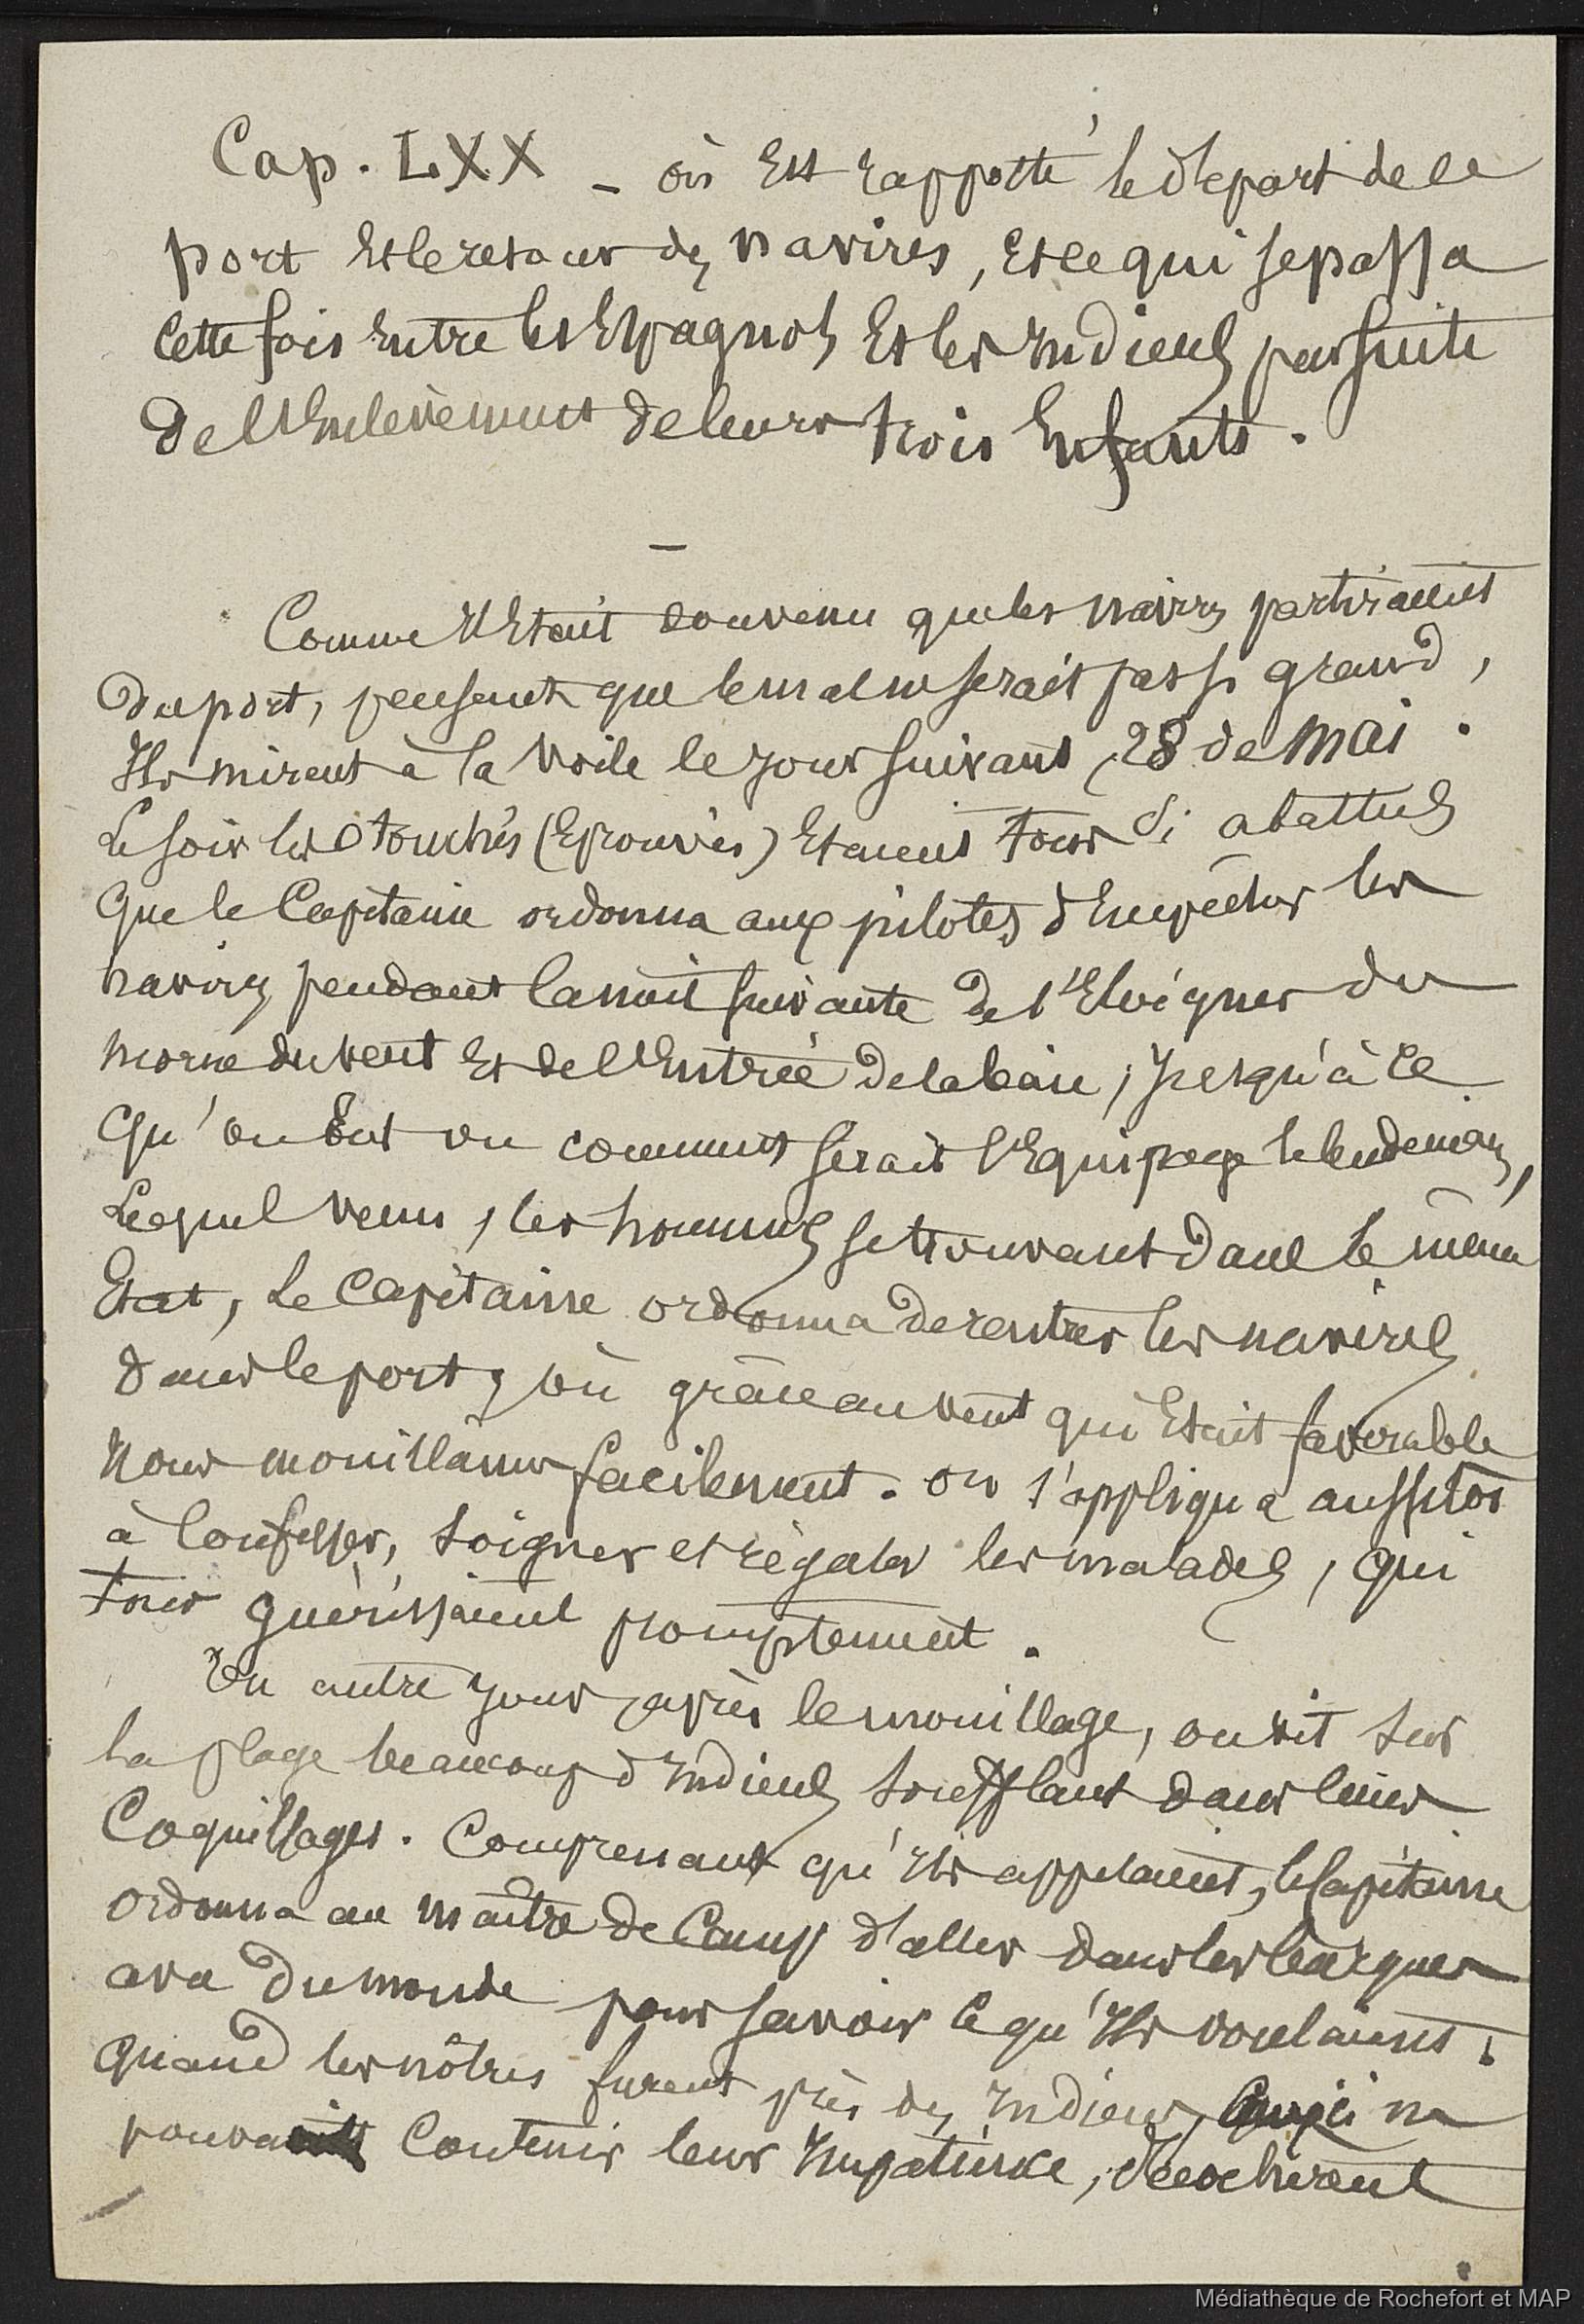 Cap. LXX _ où est rapporté le départ de ce
port et le retour des navires, et ce qui se passa
cette fois entre les Espagnols et les Indiens par suite
de l'enlèvement de leurs trois enfants.
_
Comme il était convenu que les navires partiraient
du port, pensant que le mal ne serait pas si grand,
Ils mirent à la voile le jour suivant, 28 de mai.
Le soir les touchés (éprouvés) étaient tous si abattus
que le Capitaine ordonna aux pilotes d'empêcher les
navires pendant la nuit suivante de s'éloigner du
morne du vent et de l'entrée de la baie, jusqu'à ce
qu'on eut vu comment serait l'équipage le lendemain,
Lequel venu, les hommes se trouvant dans le même
état, le Capitaine ordonna de rentrer les navires
dans le port, où grâce au vent qui était favorable
nous mouillâmes facilement. On s'appliqua aussitôt
à confesser, soigner et régaler les malades, qui
tous guérissaient promptement.
Un autre jour, après le mouillage, on vit sur
la plage beaucoup d'Indiens soufflant dans leurs
Coquillages. Comprenant qu'ils appelaient, le Capitaine
ordonna au maître de Camp d'aller dans les barques
avec du monde pour savoir ce qu'ils voulaient.
Quand les nôtres furent près des Indiens, ceux-ci ne
pouvant contenir leur impatience,
Médiathèque de Rochefort et MAP